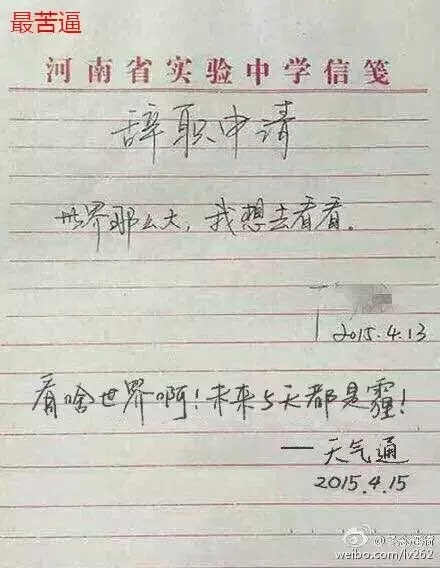 最苦逼
河南省实验中学信笺
辞职申请
世界那么大，我想去看看.
2015.4.13
看啥世界啊！未来5天都是霾！
——天气通
2015.4.15
weibo.com/lv262